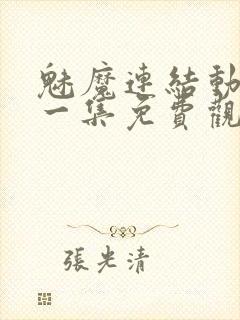 魅魔連結動
一集免費觀
張光清